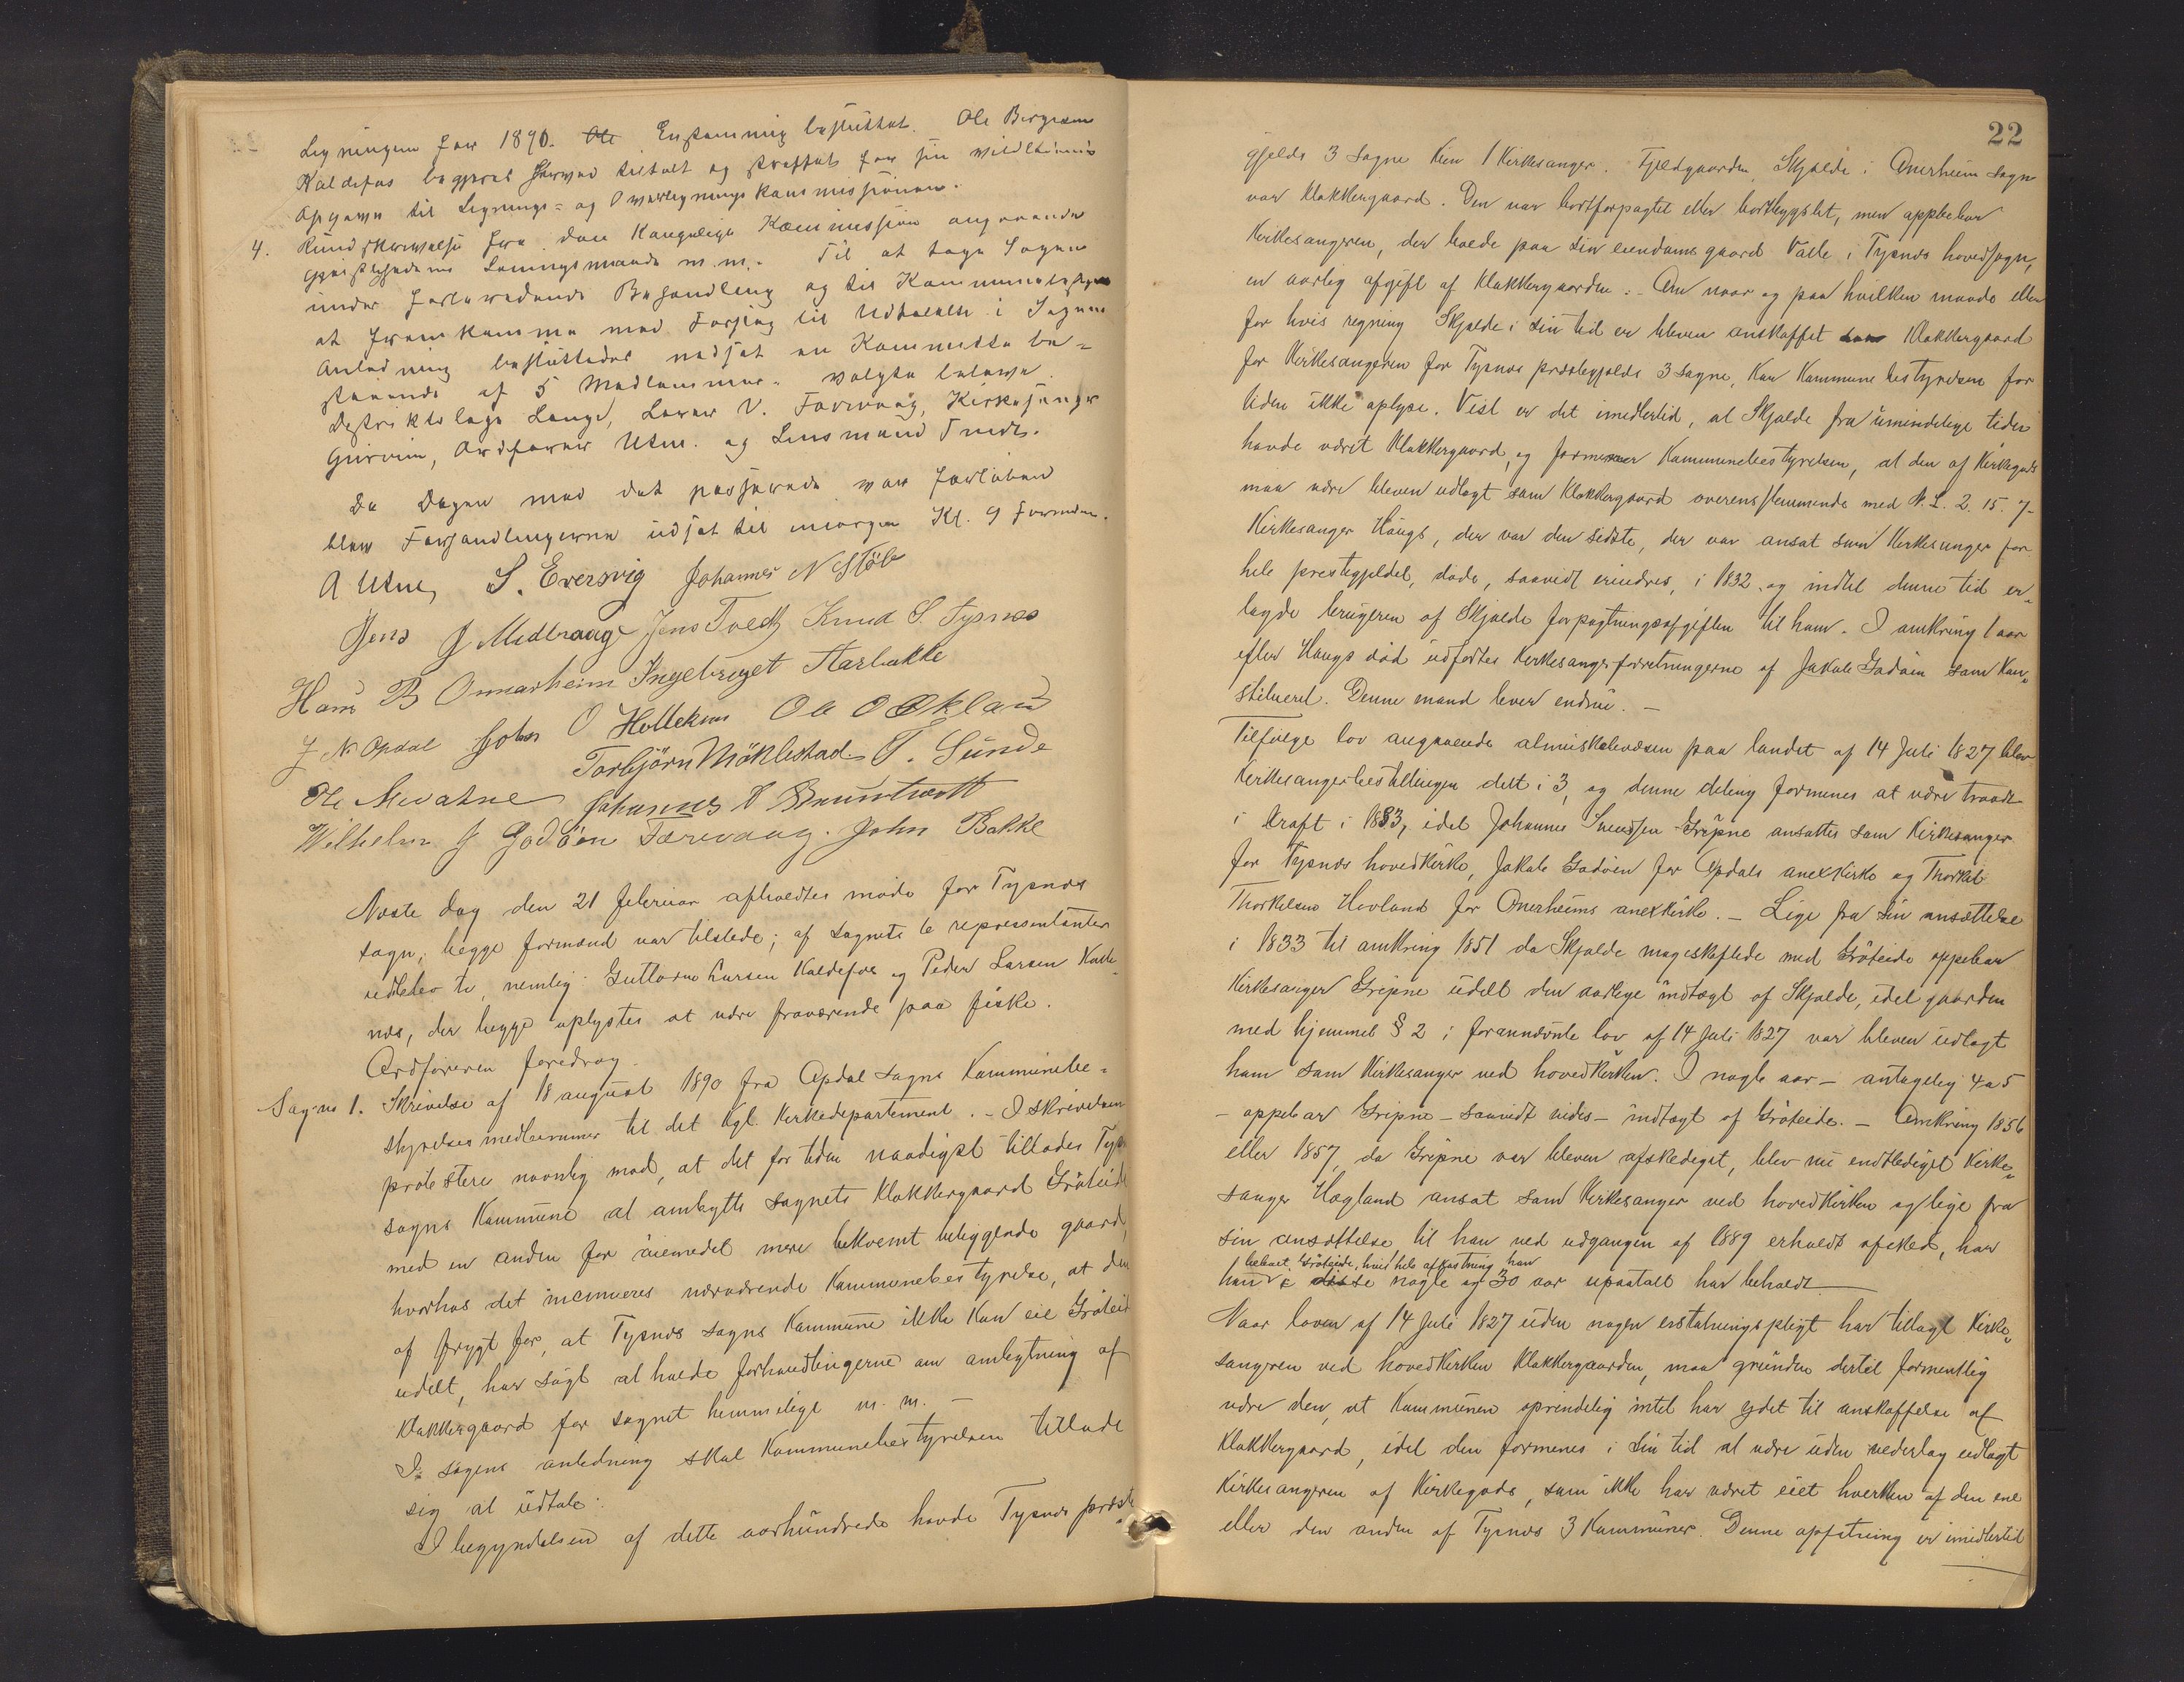 Ligningen for 1890. Enstemmig besluttet. Ole Birgesen
Kaldefos begjæres herved tiltalt og straffet for sin
Opgave til Lignings- og Overligningskommissionen.
4. Rundskrivelse fra den Kongelige Kommission angaaende
Geistlighedens Lønningsmaade m.m. Til at tage Sagen
under forberedende Behandling og til Kommunestyret
at fremkomme med Forslag til Udtalelse i Sagens
Anledning besluttedes nedsat en Kommitte be-
staaende af 5 Medlemmer. Valgte bleve
Distriktslæge Lange, Lærer V. Færevaag, Kirkesanger
Ordfører Utne. og Lensmand Tvedt.
Da Dagen med det passerede var forløben
blev Forhandlingerne udsat til imorgen Kl. 9 Formdm.
A Utne, S. Eversvig Johannes N Støle
Jens J Midtvaage Jens Tvedt Knud S. Tysnes
Hans B Onnarheim Ingebrigt Aarbakke
J N Opdal John O Hollekim Ole O Økland
Torbjørn Møklestad T. Sunde
Ole Mevatne Johannes
Wilhelm J Godøen Færevaag. John Bakke
Næste dag den 21 februar afholdtes møde for Tysnes
sogn; begge formænd var tilstede; af sognets 6 repræsentanter
udeblev to, nemlig Guttorm Larsen Kaldefos og Peder Larsen
nes, der begge oplystes at være fraværende paa fiske.
Ordføreren foredrog
Sag no 1. Skrivelse af 18 august 1890 fra Opdal sogns Kommunebe-
styrelsesmedlemmer til det Kgl. Kirkedepartement. - I skrivelsen
protestere navnlig mod, at det for tiden naadigst tillades Tysnes
sogns Kommune at ombytte sognets Klokkergaard Gröteide
med en anden for øiemedet mere bekvemt beliggende gaard,
hvorhos det insinueres nærværende Kommunebestyrelse, at den
af frygt for, at Tysnes sogns Kommune ikke kan eie Gröteide
udelt, har søgt at holde forhandlingerne om ombytning af
Klokkergaard for sognet hemmelige m. m. -
I sagens anledning skal Kommunebestyrelsen tillade
sig at udtale:
I begyndelsen af dette aarhundrede havde Tysnes præste-
22
gjelds 3 sogne kun 1 Kirkesanger. Fjeldgaarden Skjælde i Onerheim sogn
var Klokkergaard. Den var bortforpagtet eller bortbygslet, men oppebar
Kirkesangeren, der boede paa sin eiendomsgaard Vaule i Tysnes hovedsogn,
en aarlig afgift af Klokkergaarden. - Om naar og paa hvilken maade eller
for hvis regning Skjælde i sin tid er bleven anskaffet som Klokkergaard
for Kirkesangeren for Tysnes præstegjelds 3 sogne, kan Kommunebestyrelsen for
tiden ikke oplyse. Vist er det imidlertid, at Skjælde fra umindelige tider
havde været Klokkergaard, og formener Kommunebestyrelsen, at den af Kirkegods
maa være bleven udlagt som Klokkergaard overensstemmende med N. L. 2. 15. 7-
Kirkesanger Haugs, der var den sidste, der var ansat som Kirkesanger for
hele prestegjeldet, døde, saavidt erindres, i 1832 og indtil denne tid er-
lagde brugeren af Skjælde forpagtningsafgiften til ham. I omkring 1 aar
efter Haugs død udførtes Kirkesangerforretningerne af Jakob Godøen som kon-
stitueret. Denne mand lever endnu. -
Tilfølge lov angaaende almueskolevæsen paa landet af 14 Juli 1827 blev
Kirkesangerbestillingen delt i 3, og denne deling formenes at være traadt
i kraft i 1833, idet Johannes Svendsen Gripne ansattes som Kirkesanger
for Tysnes hovedkirke, Jakob Godøen for Opdals anexkirke og Thorkel
Thorkelsen Hovland for Onerheims anexkirke. - Lige fra sin ansættelse
i 1833 til omkring 1851 da Skjælde mageskiftede med Gröteide oppebar
Kirkesanger Gripne udelt den aarlige indtægt af Skjælde, idet gaarden
med hjemmel § 2 i forannævnte lov af 14 Juli 1827 var bleven udlagt
ham som Kirkesanger ved hovedkirken. I nogle aar - antagelig 4 a 5
- oppebar Gripne - saavidt vides - indtægt af Gröteide. - Omkring 1856
eller 1857, da Gripne var bleven afskediget, blev nu endtlediget Kirke-
sanger Hægland ansat som Kirkesanger ved hovedkirken og lige fra
sin ansættelse til han ved udgangen af 1889 erholdt afsked, har
beboet Gröteide, hvis hele afkastning han
han i disse nogle og 30 aar upaatalt har beholdt
Naar loven af 14 Juli 1827 uden nogen erstatningspligt har tillagt Kirke-
sangeren ved hovedkirken Klokkergaarden, maa grunden dertil formentlig
være den, at Kommunen oprindelig intet har ydet til anskaffelse af
Klokkergaard, idet den formenes i sin tid at være uden vederlag udlagt
Kirkesangeren af Kirkegods, som ikke har været eiet hverken af den ene
eller den anden af Tysnes 3 Kommuner. Denne opfatning er imidlertid